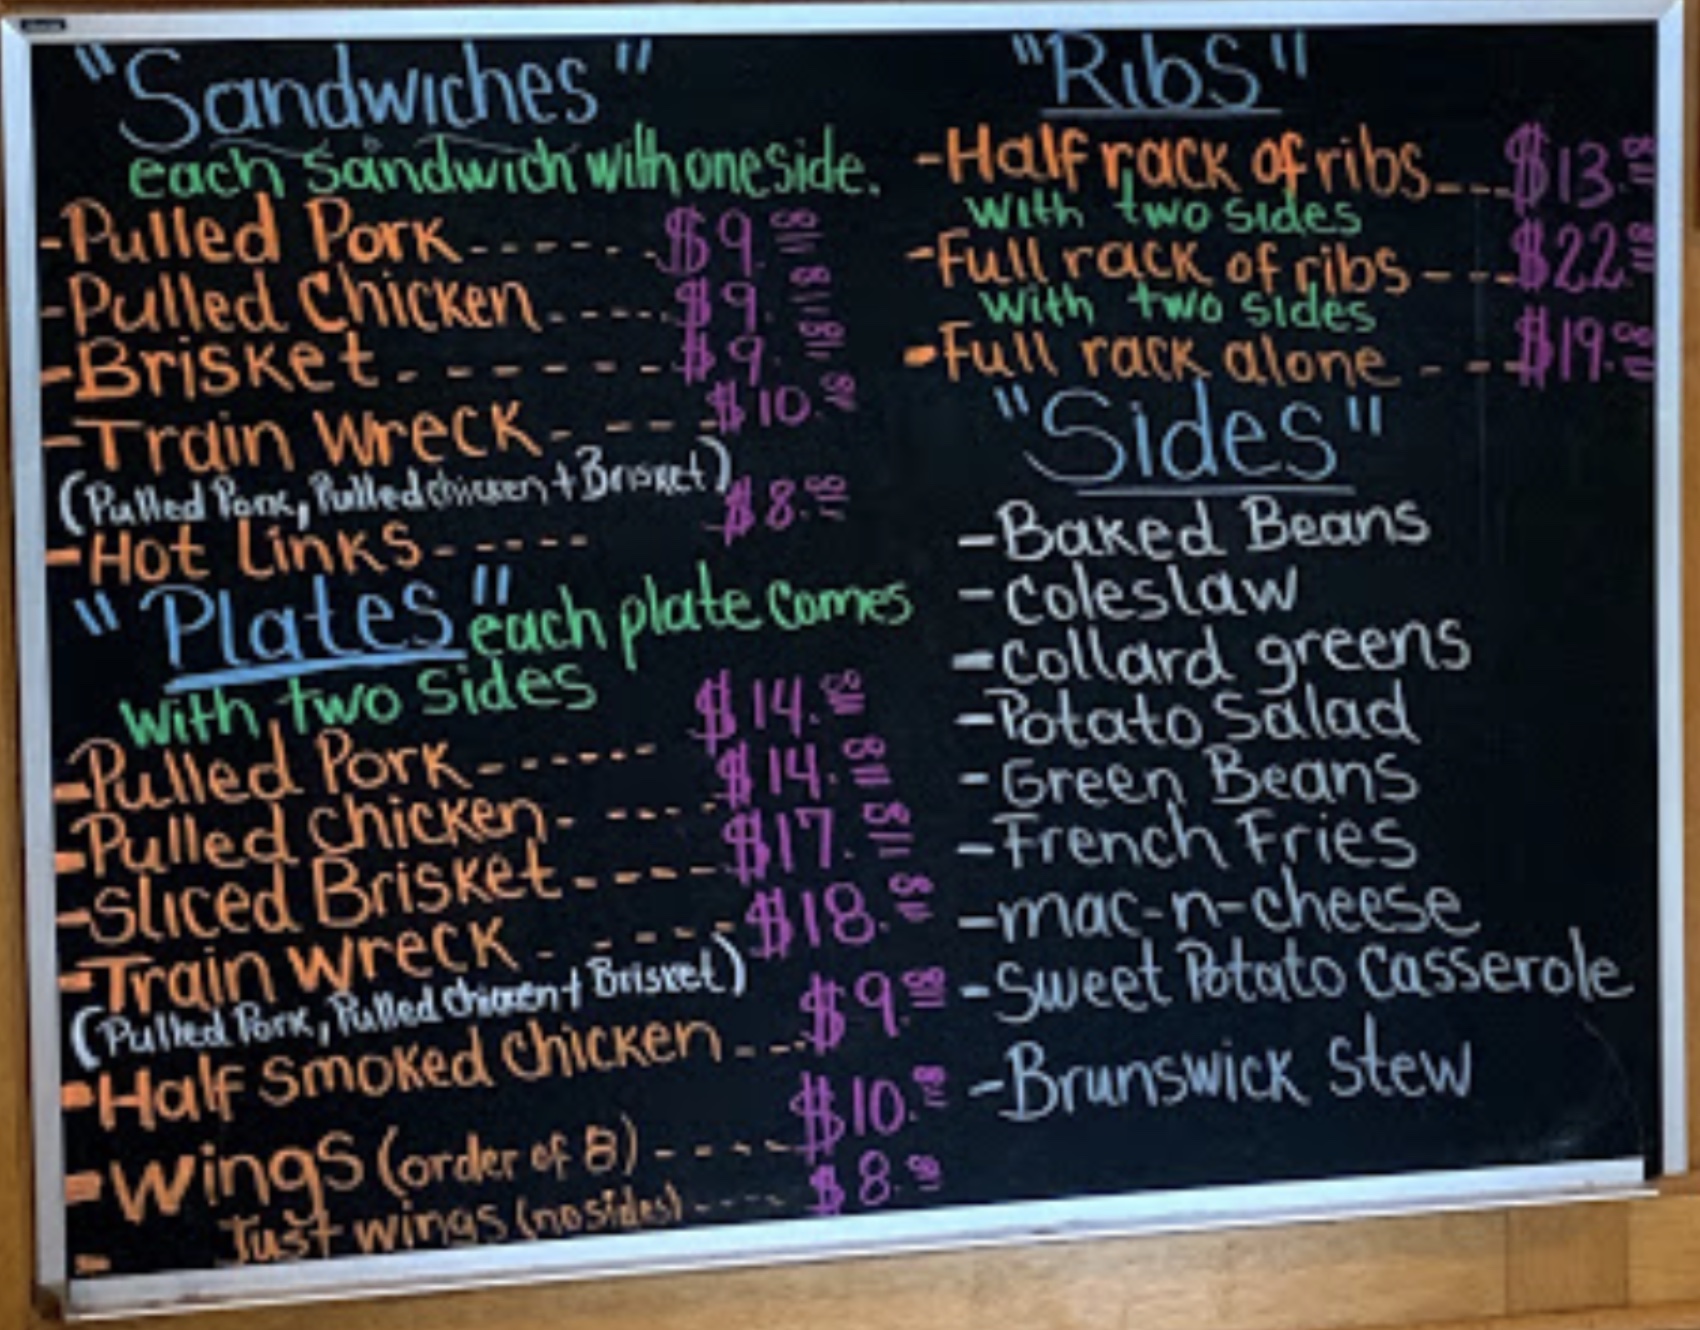 "Sandwiches"
each sandwich with one side.
-Pulled Pork------$9.00
-Pulled Chicken-----$9.00
-Brisket-------$9.00
-Train Wreck----$10.00
(Pulled Pork, Pulled chicken + Brisket)
-Hot Links-----$8.00
"Plates" each plate comes
with two sides
-Pulled Pork------$14.00
-Pulled Chicken-----$14.00
-Sliced Brisket-----$17.00
-Train wreck-----$18.00
(Pulled Pork, Pulled Chicken + Brisket)
-Half smoked chicken---$9.00
-Wings (order of 8)----$10.00
- Just wings (no sides)----$8.00
"Ribs"
-Half rack of ribs---$13.00
with two sides
-Full rack of ribs---$22.00
with two sides
-Full rack alone---$19.00
"Sides"
-Baked Beans
-Coleslaw
-Collard greens
-Potato Salad
-Green Beans
-French Fries
-mac-n-cheese
-Sweet Potato Casserole
-Brunswick Stew